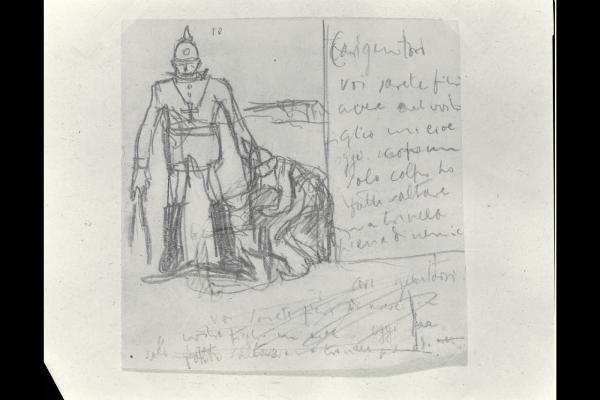 10
Cari genitori
voi sarete fieri
avere nel vost
figlio un eroe
oggi. un
solo colpo ho
fatto saltare
una trincea
piena di nemici
cari genitori
voi sarete fieri di avere
vostro figlio un eroe oggi
solo fatto saltare una trincea